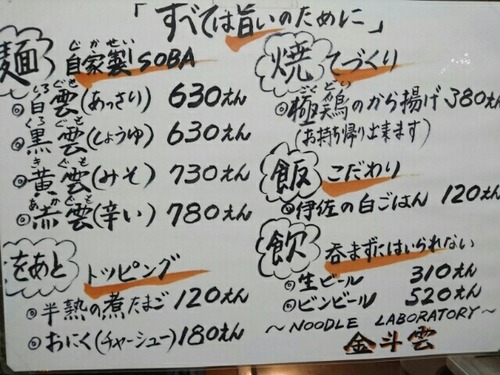 「すべては旨いのために」
麺 自家製SOBA
じかせい
◎白雲(あっさり)630えん
しろぐも
◎黒雲(しょうゆ)630えん
くろぐも
◎黄雲(みそ)730えん
きぐも
◎赤雲(辛い)780えん
あかぐも
をあと トッピング
◎半熟の煮たまご120えん
◎おにく(チャーシュー)180えん
焼 てづくり
◎極鶏のから揚げ380えん
ごくどり
(お持ち帰り出来ます)
飯 こだわり
◎伊佐の白ごはん120えん
飲 呑まずにはいられない
◎生ビール 310えん
◎ビンビール 520えん
～NOODLE LABORATORY～
金斗雲